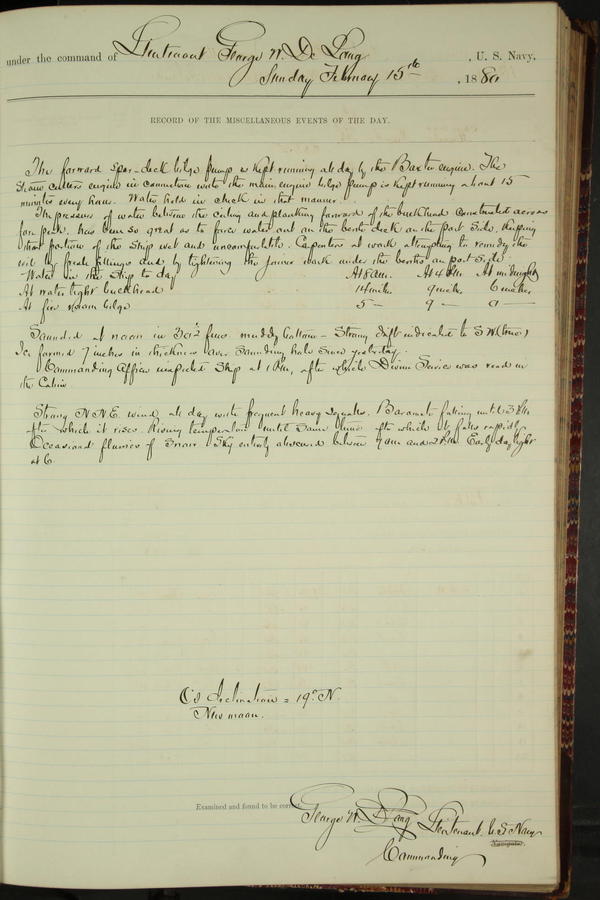 under the command of Lieutenant George W. De Long , U. S. Navy,
Sunday February 15th , 1880
RECORD OF THE MISCELLANEOUS EVENTS OF THE DAY.
The forward spar-deck bilge pump is kept running all day by the Baxter engine. The
Steam cutters engine in connection with the main engine bilge pump is kept running about 15
minutes every hour. Water held in check in that manner.
The pressure of water between the ceiling and planking forward of the bulkhead constructed across
fore peak, has been so great as to force water out on the berth deck on the port side, keeping
that portion of the ship wet and uncomfortable. Carpenters at work attempting to remedy the
evil by fresh fillings and by tightening the joiner work under the berths on port side.
Water in the ship to day At 8 am. At 4 Pm At midnight
At water tight bulkhead 14 inches 9 inches 6 inches
At fire room bilge 5 — 9 — 9 —
Sounded at noon in 30 1/2 fms muddy bottom - Strong drift indicated to S.W. (true)
Ice formed 7 inches in thickness over sounding hole since yesterday.
Commanding Officer inspected Ship at 1 Pm, after which Divine Service was read in
the Cabin
Strong N.N.E. wind all day with frequent heavy squalls. Barometer falling until 3 Pm
after which it rises. Rising temperature until same time after which it falls rapidly
Occasional flurries of snow. Sky entirely obscured between 7 am and 2 Pm. Early daylight
at 6.
☾'s declination = 19° N.
New moon.
Examined and found to be correct.
George W. De Long Lieutenant U.S. Navy
Commanding